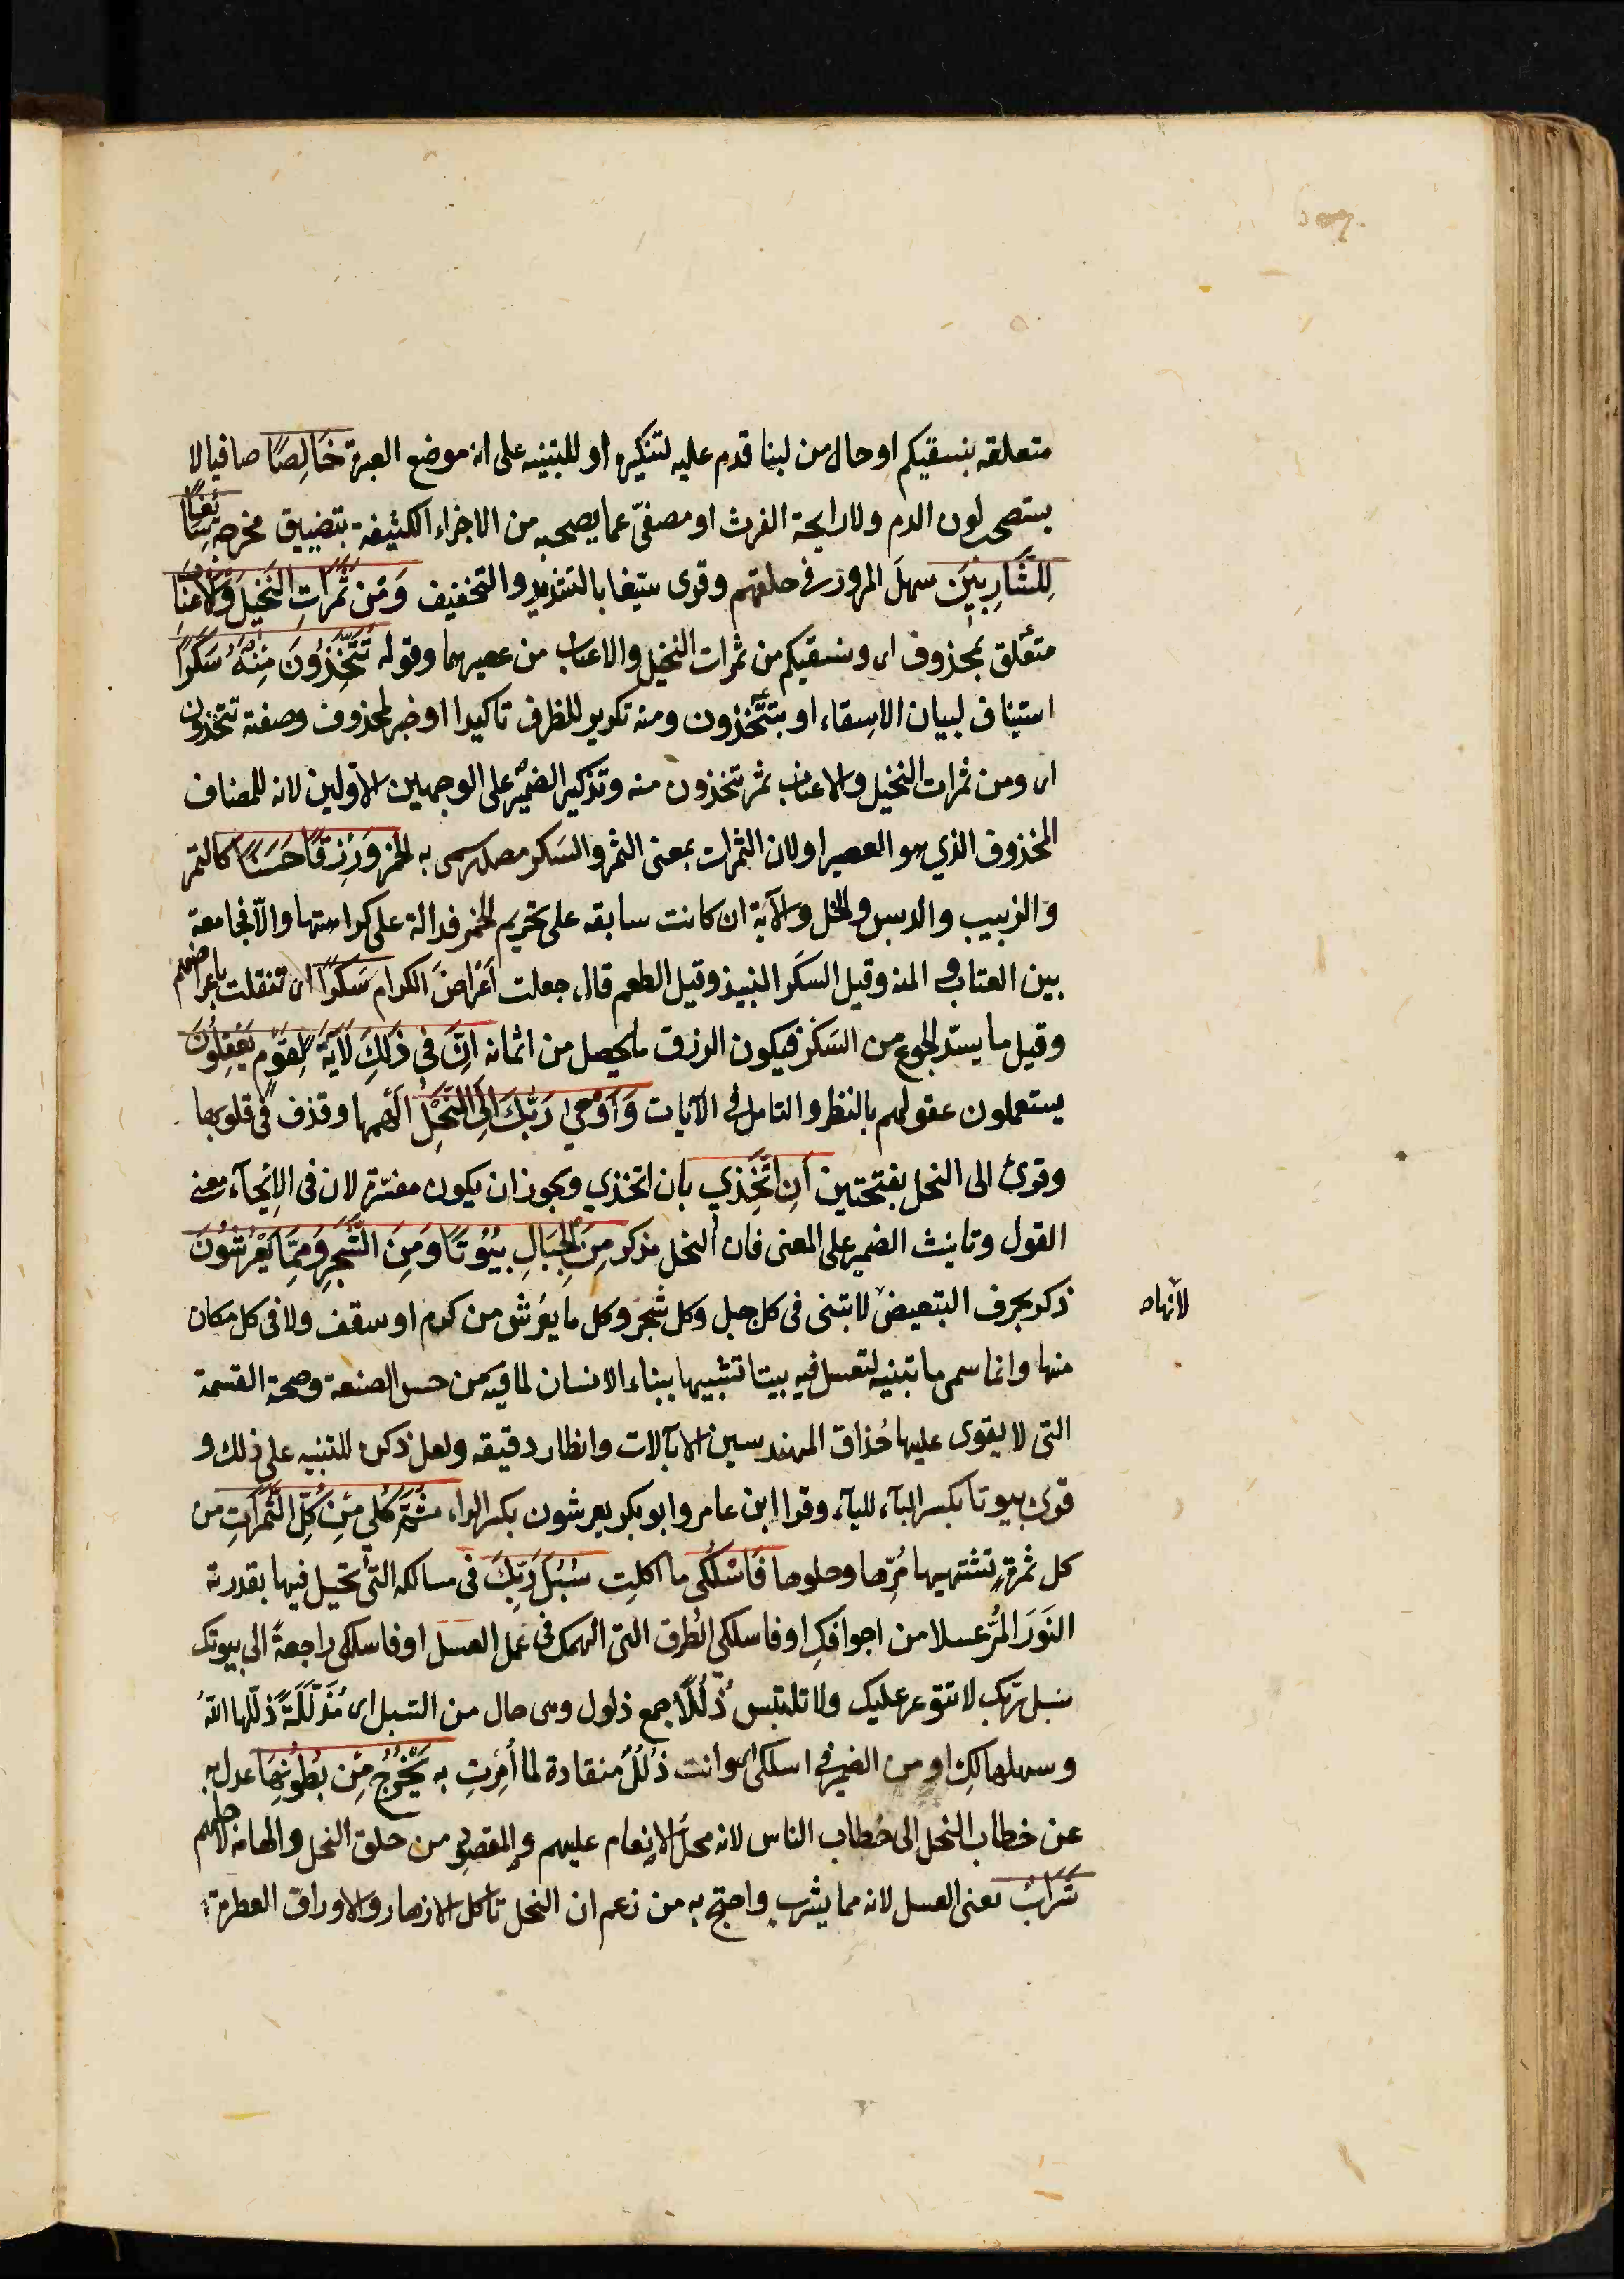 متعلقه بنسقيكم او حال من لبنا قدم عليه لتنكيره او للتنبيه على انه موضع العبرة خَالِصًا صافيا لا
يستصحب لون الدم ولا رايحة الفرث او مصفىّ عما يصحبه من الاجزاء الكثيفة بتضييق مخرجه سَائِغًا
لِلشَّارِبِينَ سهلَ المرور فى حلقهم وقرى سيّغا بالتشديد والتخفيف وَمِن ثَمَرَاتِ النَّخِيلِ وَالْاَعْنَابِ
متعلق بمحذوف اى ونسقيكم من ثمرات النخيل والاعناب من عصيرهما وقوله تَتَّخِذُونَ مِنْهُ سَكَرًا
استيناف لبيان الاِسقاء او بتتّخذون ومنه تكرير للظرف تاكيدا او خبر لمحذوف وصفته تتخذون
اى ومن ثمرات النخيل والاعناب ثمر تتخذون منه وتذكير الضمير على الوجهين الاوّلين لانه للمضاف
المحذوف الذي هو العصير او لان الثمرات بمعنى الثمر والسَكر مصدر سمى به الخمر وَرِزْقًا حَسَنًا كالتمر
والزبيب والدبس والخل والآية ان كانت سابقه على تحريم الخمر فدالة على كراهتها والّا فجامعة
بين العتاب و المنه وقيل السكَر النبيذ وقيل الطعم قال جعلت اَعْرَاضَ الكرام سَكَرًا اى تنقلت باعراضهم
وقيل ما يسدّ الجوع من السَكْر فيكون الرزق ما يحصل من اثمانه اِنَّ فى ذَلِكَ لَآيَةً لِقَوْمٍ يَعْقِلُونَ
يستعملون عقولهم بالنظر والتامل فى الآيات وَاَوْحَي رَبُّكَ اِلَى النَّحْلِ الهمها وقذف فى قلوبها
وقرئ الى النحل بفتحتين اَنِ اتَّخِذِي بان اتخذي ويجوز ان يكون مفسّرة لان فى الاِيحآء معنى
القول وتانيث الضمير على المعنى فان النحل مذكر مِنَ الْجِبَالِ بُيُوتًا وَمِنَ الشَّجَرِ وَمِمَّا يَعْرِشُونَ
ذكر بحرف التبعيض لا تبنى فى كل جبل وكل شجر وكل ما يعْرش من كرم او سقف ولا فى كل مكان
لانهاصح
منها وانما سمى ما تبنيه لتعسل فيه بيتا تشبيها ببناء الانسان لما فيه من حسن الصنعة وصحة القسمة
التى لا يقوى عليها حُذاق المهندسين الا بآلات وانظار دقيقه ولعل ذكره للتنبيه على ذلك و
قرئ بيوتا بكسر البآء للياء وقرا ابن عامر وابو بكر يعرشون بكسر الراء ثُمَّ كُلِي مِن كُلِّ الثَّمَرَاتِ من
كل ثمرةٍ تشتهيها مُرِّها وحلوها فَاسْلُكِى ما اكلتِ سُبُلَ رَبِّكَ فى مسالكه التى تحيل فيها بقدرته
النَورَ المُرَّ عسلا من اجوافكِ او فاسلكى الطرق التى الهمك فى عمل العسل او فاسلكى راجعةً الى بيوتك
سبل ربّك لا تتوعر عليك ولا تلتبس ذُلُلًا جمع ذلول وهى حال من السبل اى مُذَلَّلَةً ذلّلها اللّه
وسهلها لكِ او من الضمير فى اسلكى اى وانت ذُلُلٌ منقادة لما اُمِرْتِ به يَخْرُجُ مِن بُطُونِهَا عدل به
عن خطاب النحل الى خطاب الناس لانه محل الانعام عليهم والمقصود من خلق النحل والهامه لاجلهم
شَرَابٌ يعنى العسل لانه مما يشرب واحتج به من زعم ان النحل تاكل الازهار والاوراق العطرة